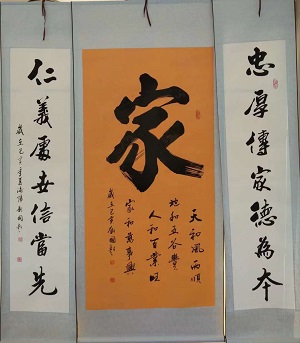 忠厚傳家德為本
家
天和風雨順
地和五谷豐
人和百業旺
家和萬事興
仁義處世信當先